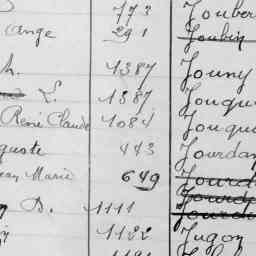 773 Jouber
Ange 291 Joubin
h. 1387 Jouny
L. 1387 Jouqu
René Claude 1084 Jouqu
guste 443 Jourdan
ean Marie 649 Jourd
D. 1111
1122 Jugon